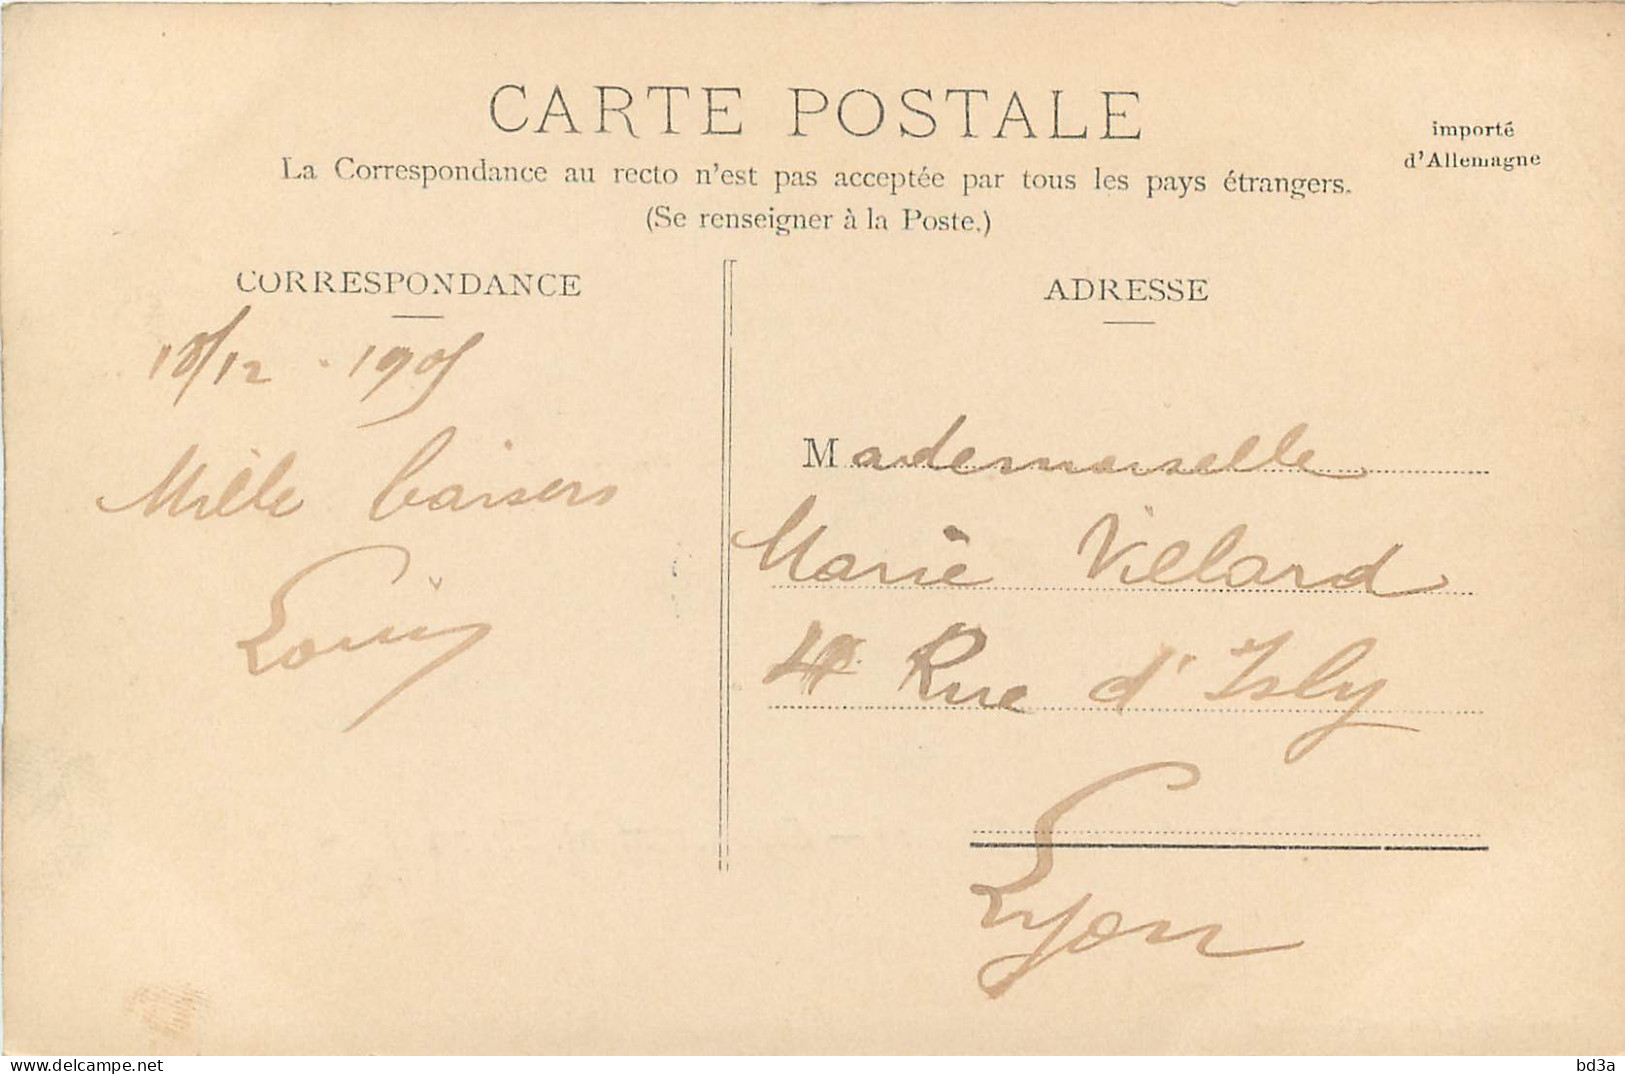 CARTE POSTALE
importé
d'Allemagne
La Correspondance au recto n'est pas acceptée par tous les pays étrangers.
(Se renseigner à la Poste.)
CORRESPONDANCE
18/12 . 1905
Mille baisers
Louis
ADRESSE
Mademoiselle
Marie Villard
Rue d'Isly
Lyon
www.delcampe.net
bd3a